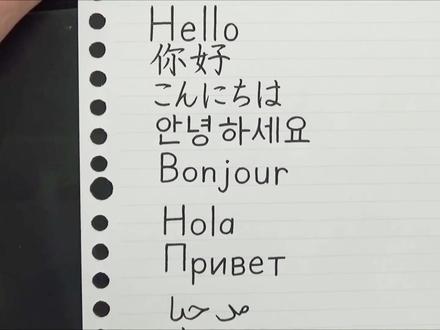 Hello
你好
こんにちは
안녕하세요
Bonjour
Hola
Привет
مرحبا